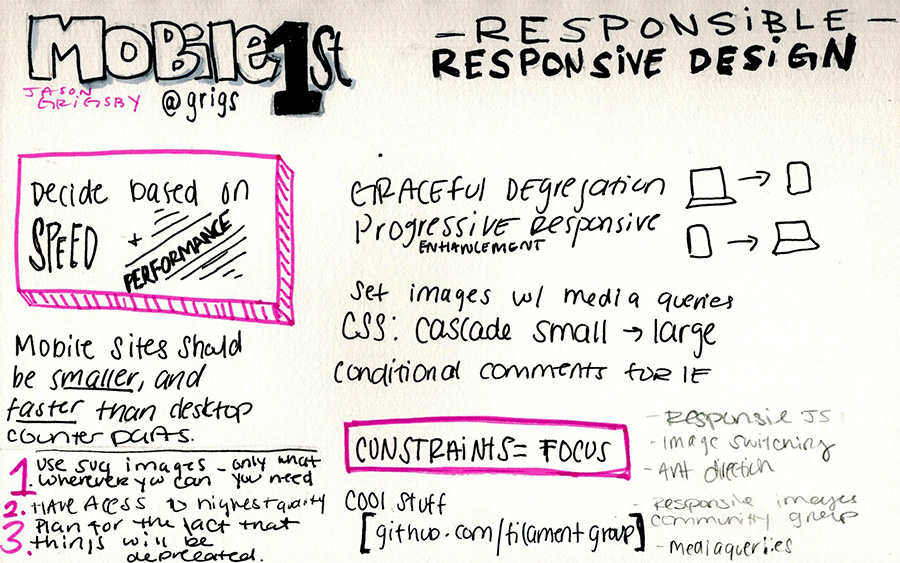 MOBile 1st
JASON
GRiGSBY
@grigs
— RESPONSiBLE —
RESPONSiVE DESiGN
Decide based on
SPEED + PERFORMANCE
Mobile Sites Should
be smaller, and
faster than desktop
counter parts.
1. Use svg images - only what
wherever you can you need
2. HAVE Access to highest quality
3. Plan for the fact that
things will be
depreceated.
GRACEFUL DEgRESATION
Progressive Responsive
ENHANCEMENT
Set images w/ media queries
CSS: Cascade small → large
Conditional comments FOR IE
CONSTRAINTS = FOCUS
COOl Stuff
[github.com/filament group]
- Responsie JS
- Image switching
- Art direction
- Responsie images
community group
- mediaqueries